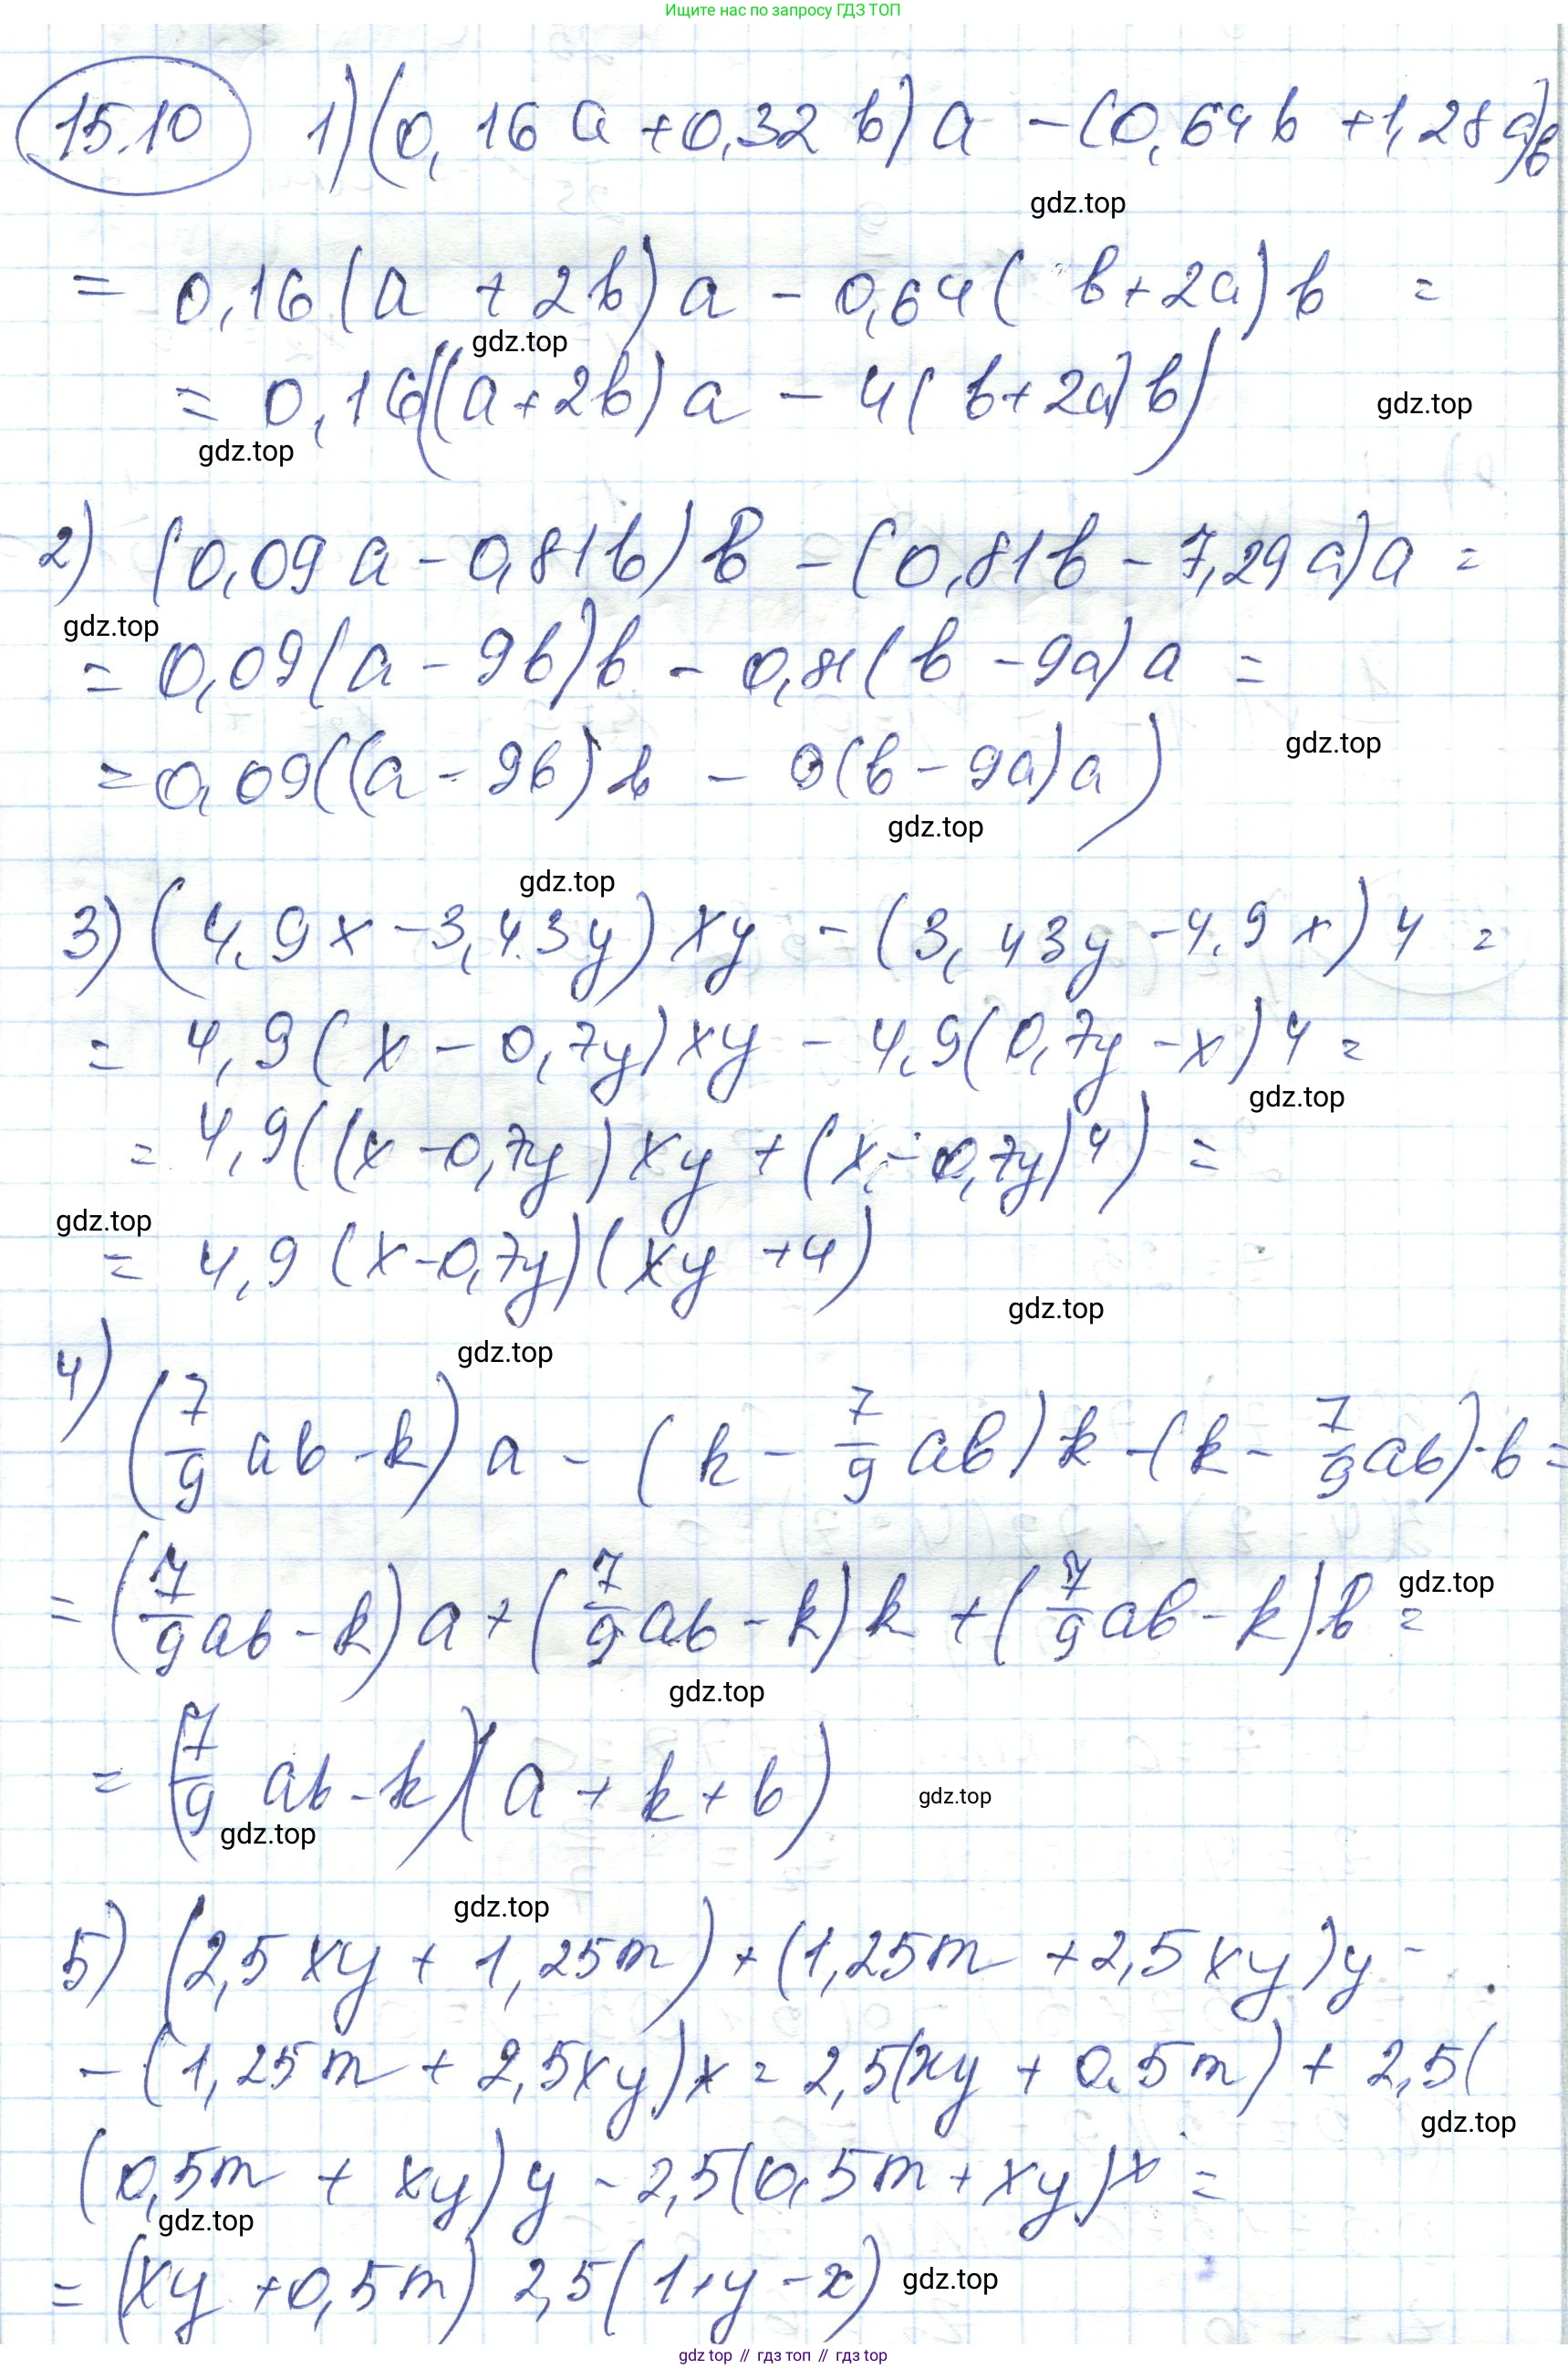 Ищите нас по запросу ГДЗ ТОП
15.10 1) (0,16a + 0,32b)a - (0,64b + 1,28a)b
gdz.top
= 0,16(a + 2b)a - 0,64(b + 2a)b =
gdz.top
= 0,16((a + 2b)a - 4(b + 2a)b)
gdz.top
gdz.top
2) (0,09a - 0,81b)b - (0,81b - 7,29a)a =
gdz.top
= 0,09(a - 9b)b - 0,81(b - 9a)a =
gdz.top
= 0,09((a - 9b)b - 9(b - 9a)a)
gdz.top
gdz.top
3) (4,9x - 3,43y)xy - (3,43y - 4,9x)4 =
= 4,9(x - 0,7y)xy - 4,9(0,7y - x)4 =
gdz.top
= 4,9((x - 0,7y)xy + (x - 0,7y)4) =
gdz.top
= 4,9(x - 0,7y)(xy + 4)
gdz.top
gdz.top
4) (7/9 ab - k)a - (k - 7/9 ab)k - (k - 7/9 ab)·b =
= (7/9 ab - k)a + (7/9 ab - k)k + (7/9 ab - k)b =
gdz.top
gdz.top
= (7/9 ab - k)(a + k + b)
gdz.top
gdz.top
gdz.top
5) (2,5xy + 1,25m) + (1,25m + 2,5xy)y -
- (1,25m + 2,5xy)x = 2,5(xy + 0,5m) + 2,5(
gdz.top
(0,5m + xy)y - 2,5(0,5m + xy)x =
gdz.top
= (xy + 0,5m) 2,5(1 + y - x)
gdz.top
gdz.top // гдз топ // гдз top